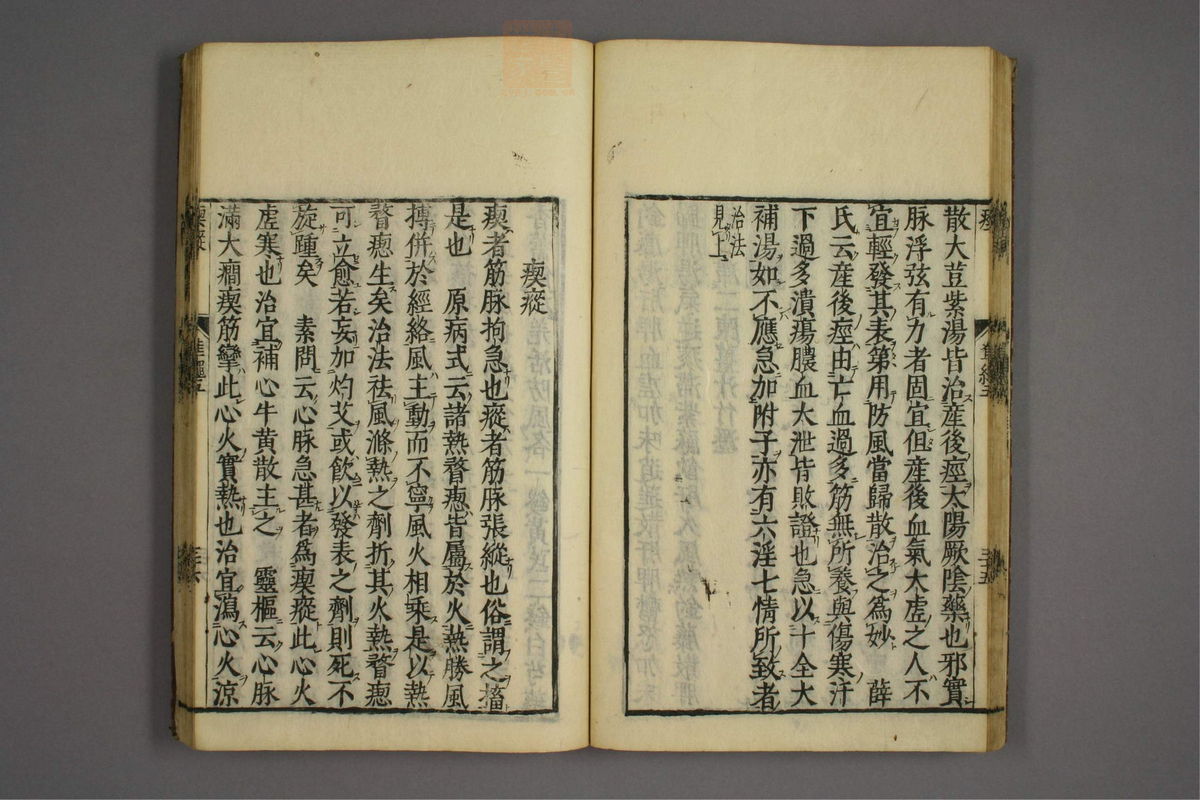 痙
散大荳紫湯皆治產後痙太陽厥陰藥也邪實
脉浮弦有力者固宜但產後血氣大虛之人不
宜輕發其表第用防風當歸散治之為妙　薛
氏云產後痙由亡血過多筋無所養與傷寒汗
下過多潰瘍膿血大泄皆敗證也急以十全大
補湯如不應急加附子亦有六淫七情所致者
治法
見上
三十五
瘈瘲
瘈者筋脉拘急也瘲者筋脉張縱也俗謂之搐
是也　原病式云諸熱瞀瘛皆屬於火熱勝風
摶併於經絡風主動而不寧風火相乘是以熱
瞀瘛生矣治法祛風滌熱之劑折其火熱瞀瘛
可立愈若妄加灼艾或飲以發表之劑則死不
旋踵矣　素問云心脉急甚者爲瘈瘲此心火
虛寒也治宜補心牛黄散主之　靈樞云心脉
滿大癎瘈筋攣此心火實熱也治宜瀉心火涼
瘈瘲
三十六